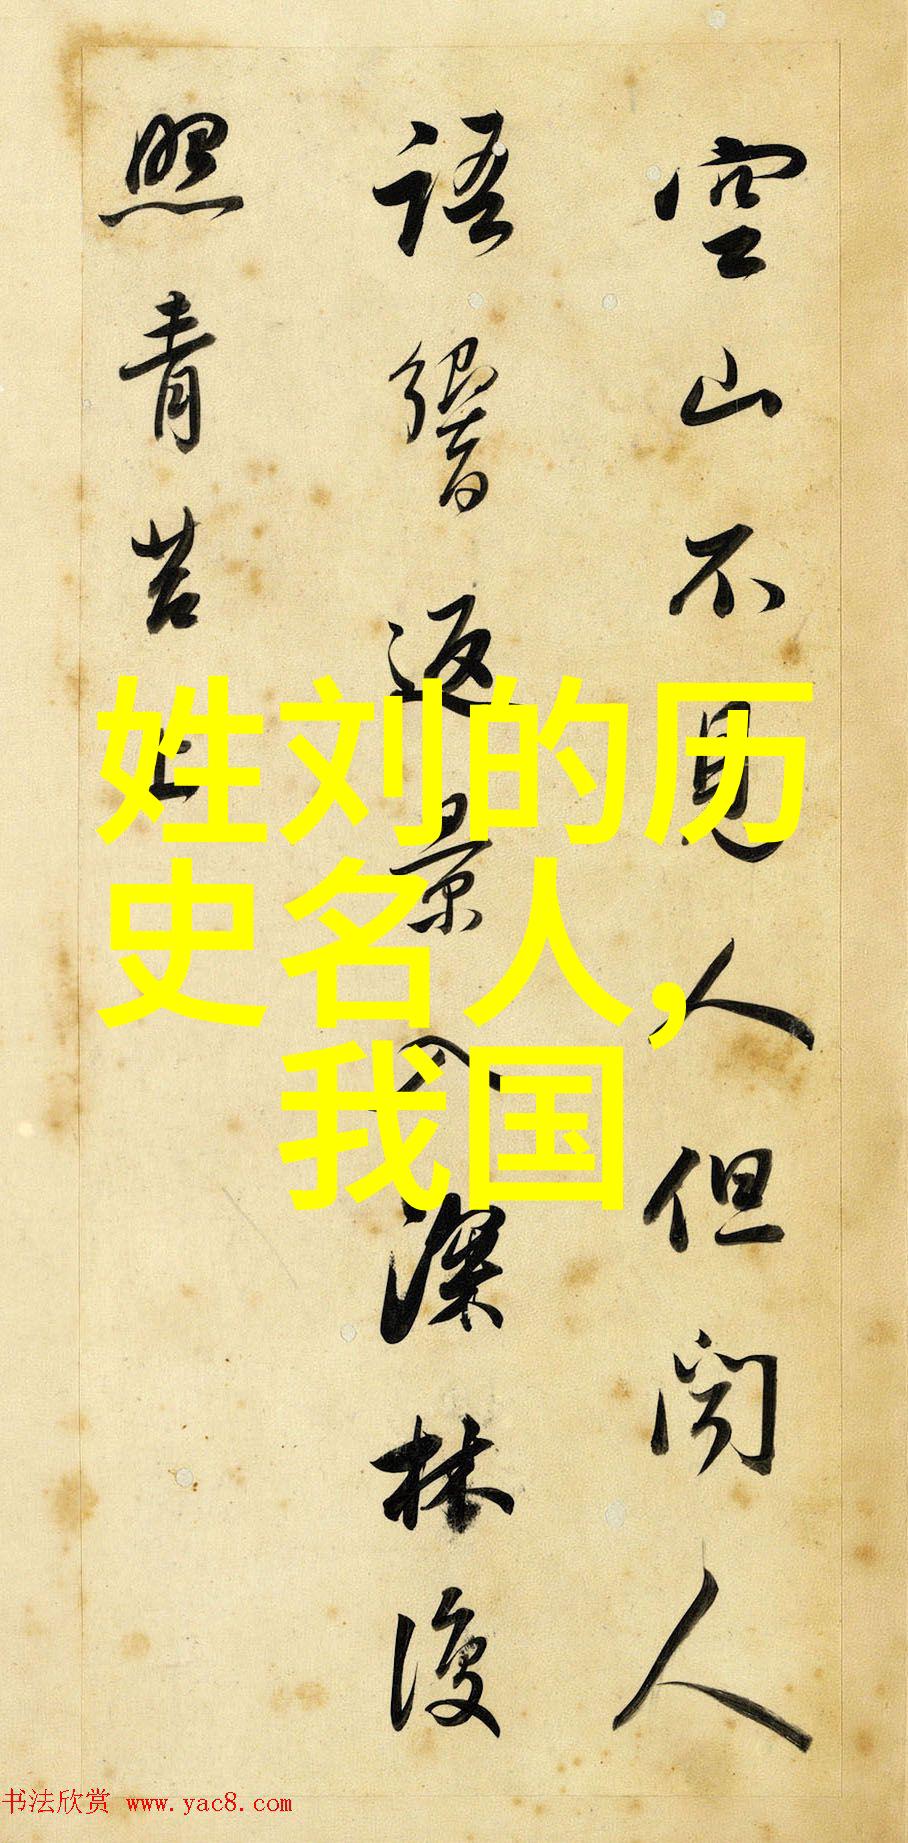 空山不見人但聞人
語響返景入深林復
照青苔上
姓刘的历
史名人，
我国
书法欣赏 www.yac8.com